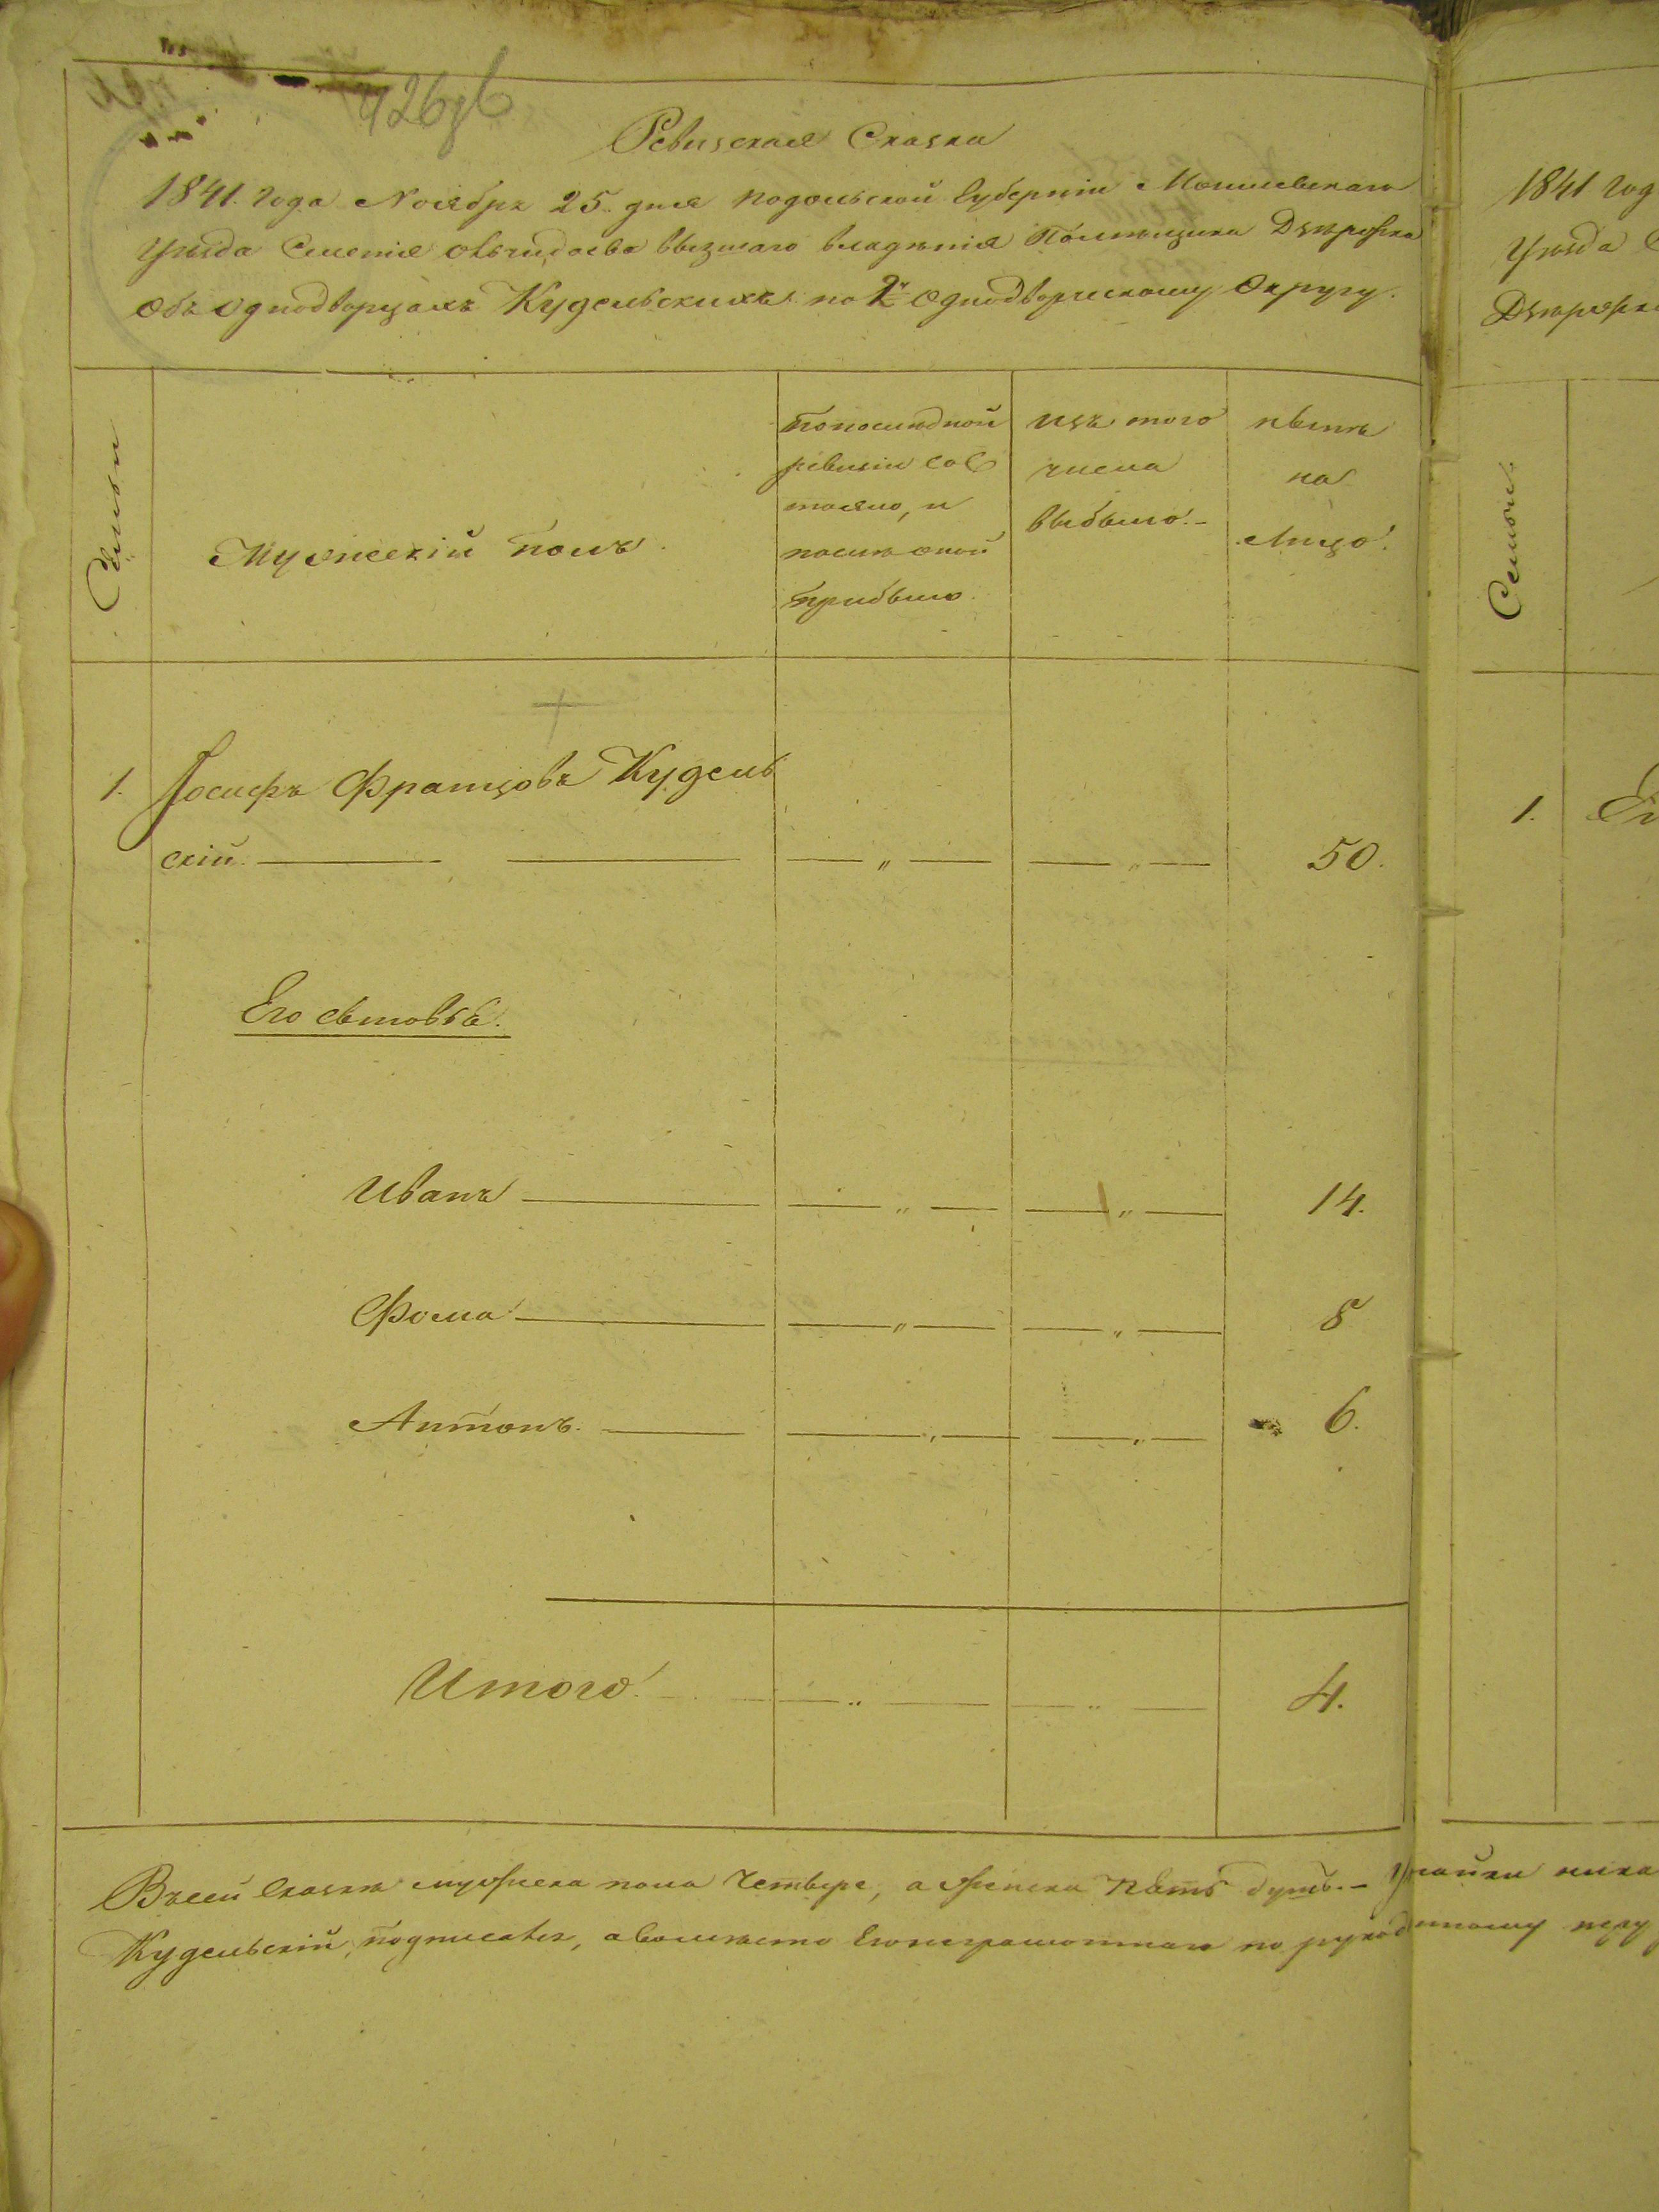 426 об
Ревизская Сказка
1841. года Ноября 25. дня Подольской Губерніи Могилевскаго
Уезда Селенія владенія Помещика
Объ однодворцахъ Кудельскихъ по 2му Однодворческому Округу.
Семьи
Мужескій полъ.
По последной
ревизіи сос
тояло, и
после оной
прибыло.
Изъ того
числа
выбыло.
Ныне
на
Лицо.
1. Іосифъ Францовъ Кудель
скій. — — — „ — — „ — 50.
Его сыновья.
Иванъ — — „ — — „ — 14.
Фома — — „ — — „ — 8
Антонъ. — — „ — — „ — 6.
Итого. — „ — — „ — 4.
Въ сей Сказке мужеска пола Четыре, а женска Пять душъ.
Кудельскій, подписалъ, а вместо Его неграмотнаго по рукоданному
1841 год
Уезда
Семьи
1.